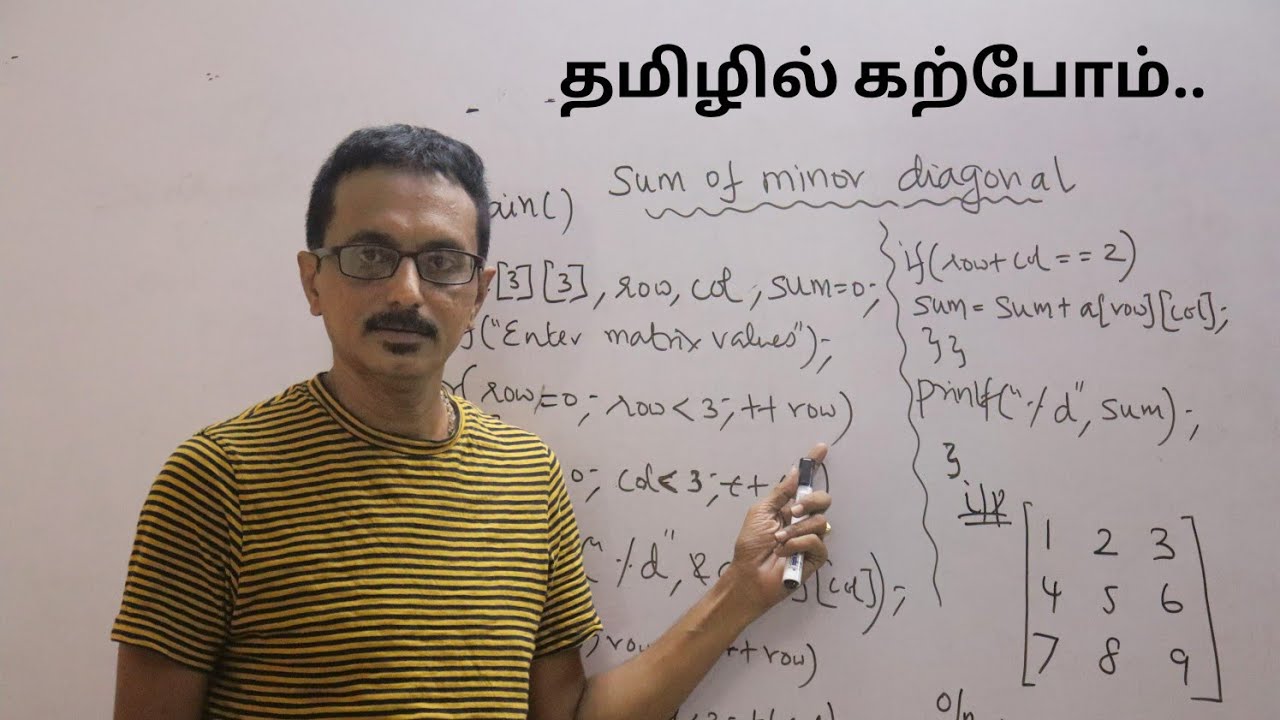 தமிழில் கற்போம்..
Sum of minor diagonal
ain()
[3][3], row, col, sum=0;
("Enter matrix values");
row=0; row<3; ++row)
0; col<3; ++
"%d", & [col]);
row ++row)
if(row+col==2)
sum=sum+a[row][col];
}}
printf("%d", sum);
}
i/p
1 2 3
4 5 6
7 8 9